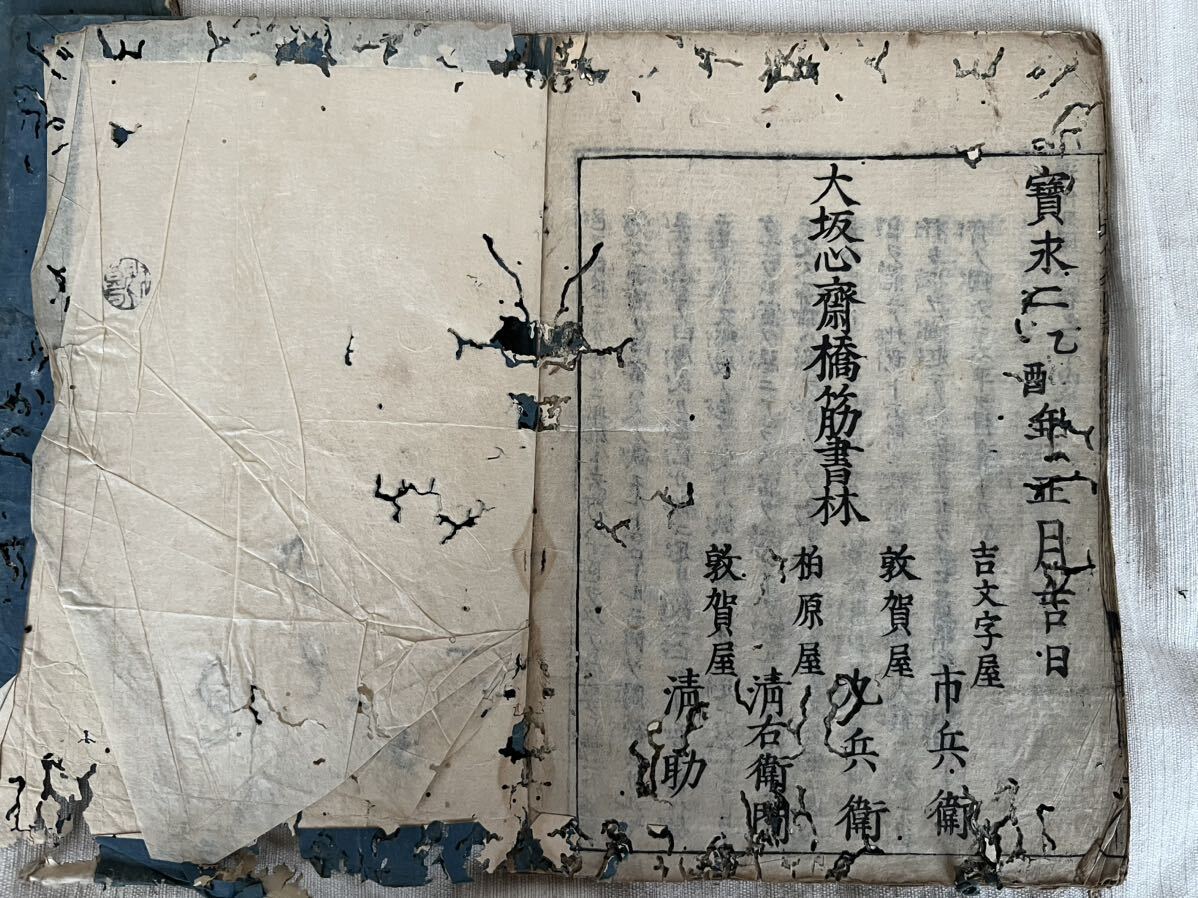 寳永二乙酉年正月吉日
大坂心齋橋筋書林
吉文字屋 市兵衛
敦賀屋 九兵衛
柏原屋 清右衛門
敦賀屋 清助